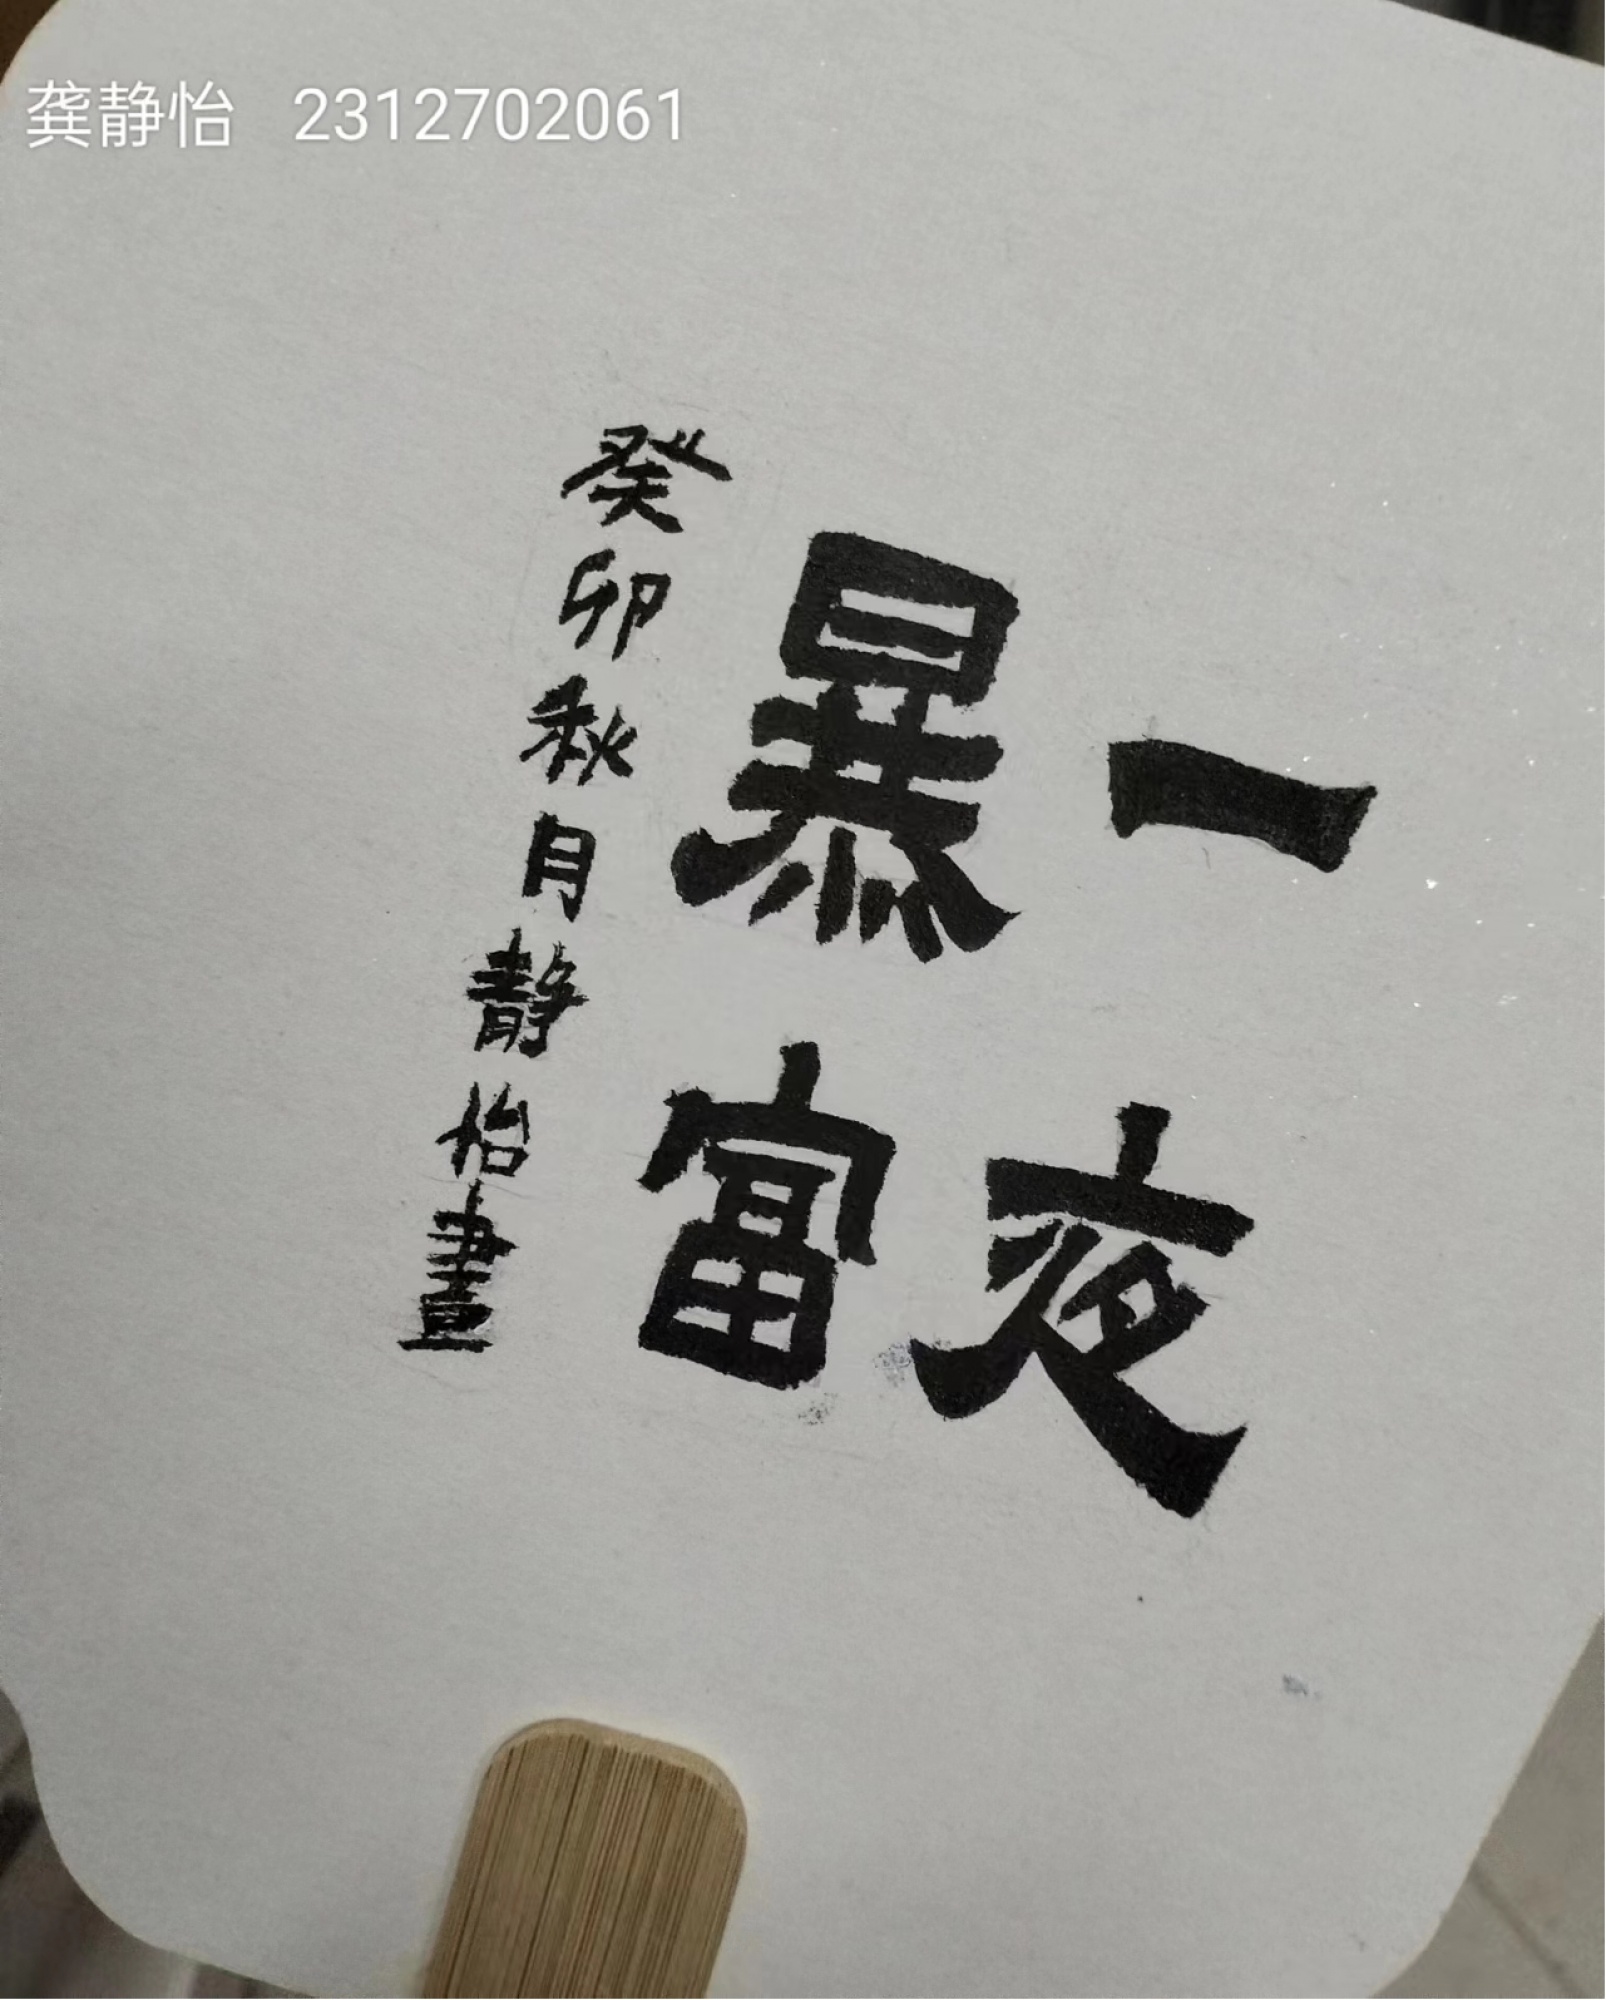 龚静怡 2312702061
一夜
暴富
癸卯秋月静怡畫